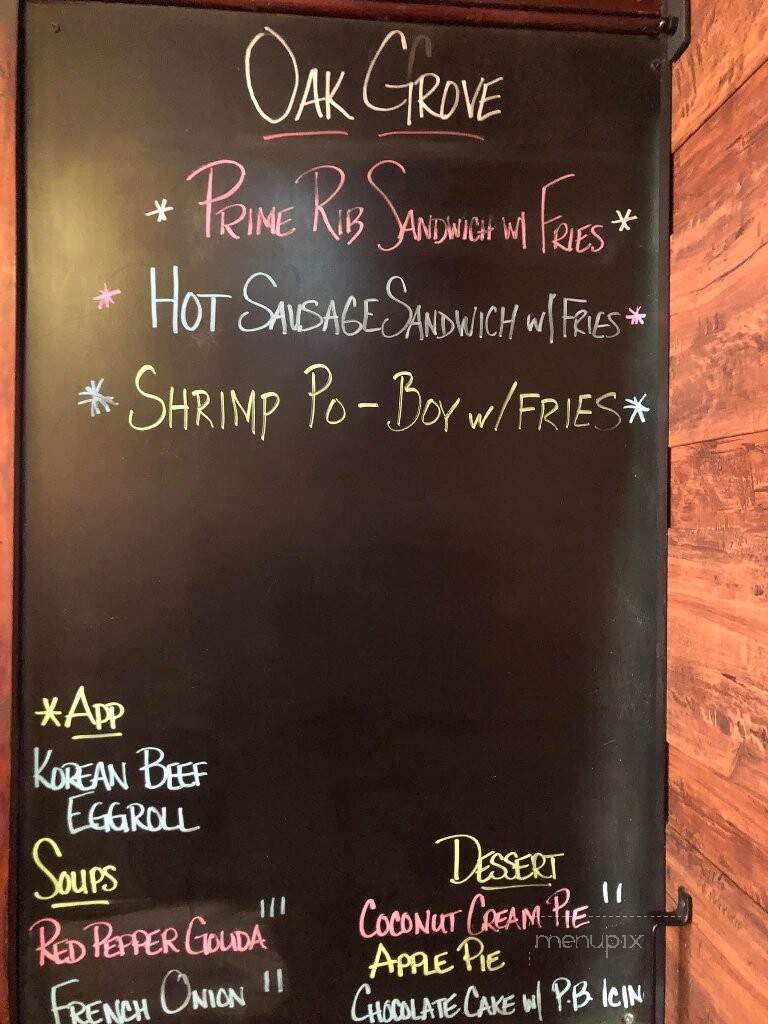 OAK GROVE
* PRIME RIB SANDWICH W/ FRIES *
* HOT SAUSAGE SANDWICH W/ FRIES *
* SHRIMP PO-BOY W/ FRIES *
*APP
KOREAN BEEF
EGGROLL
SOUPS
RED PEPPER GOUDA III
FRENCH ONION II
DESSERT
COCONUT CREAM PIE II
APPLE PIE
CHOCOLATE CAKE W/ P.B. ICIN
menupix